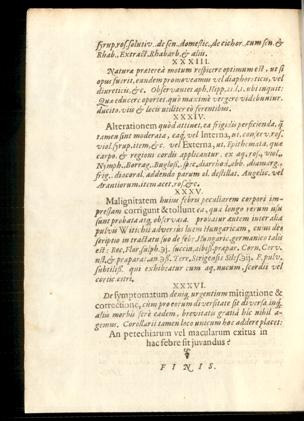 syrup. ros. solutiv. de sen. domestic. de cichor. cum sen. &
Rhab. Extract. Rhabarb. & alii.
XXXIII.
Natura præterea motum respicere optimum est, ut si
opus fuerit, eundem promoveamus vel diaphoreticis, vel
diureticis, &c. Observantes aph. Hipp. 21. l. 1. ubi inquit:
Quæ educere oportet, quò maximè vergere videbuntur,
ducito, viis & locis utiliter eò ferentibus.
XXXIV.
Alterationem quòd attinet, ea frigidis perficienda, quæ
tamen sint moderata, eaque vel Interna, ut, conserv. ros.
viol. syrup. item, &c. vel Externa, ut, Epithemata, quæ
carpo, & regioni cordis applicantur, ex aq. ros. viol.
Nymph. Borrag. Bugloss. spec. diarrhod. abb. diamarg.
frig. diocorol. addendo parum ol. destillat. Angelic. vel
Arantiorum, item acet. ros. &c.
XXXV.
Malignitatem hujus febris peculiarem corpori impressam
corrigunt & tollunt ea, quæ longo rerum usu
sunt probata atque observata. probatur autem inter alia
pulvis Witichii adversus luem Hungaricam, cujus descriptio
in tractatu suo de febr. Hungaric. germanico talis
est: Rec. flor. sulph.
ust. & præparat. an. Terr. Strigensis Siles. F. pulv.
subtiliss. qui exhibeatur cum aq. nucum, scordii vel
cortic. citri.
XXXVI.
De symptomatum denique urgentium mitigatione &
correctione, cum pro eorum diversitate sit diversa, inque
aliis morbis ferè eadem, brevitatis gratiâ hîc nihil agimus.
Corollarii tamen loco unicum hoc addere placet:
An petechiarum vel macularum exitus in
hac febre sit juvandus?
FINIS.